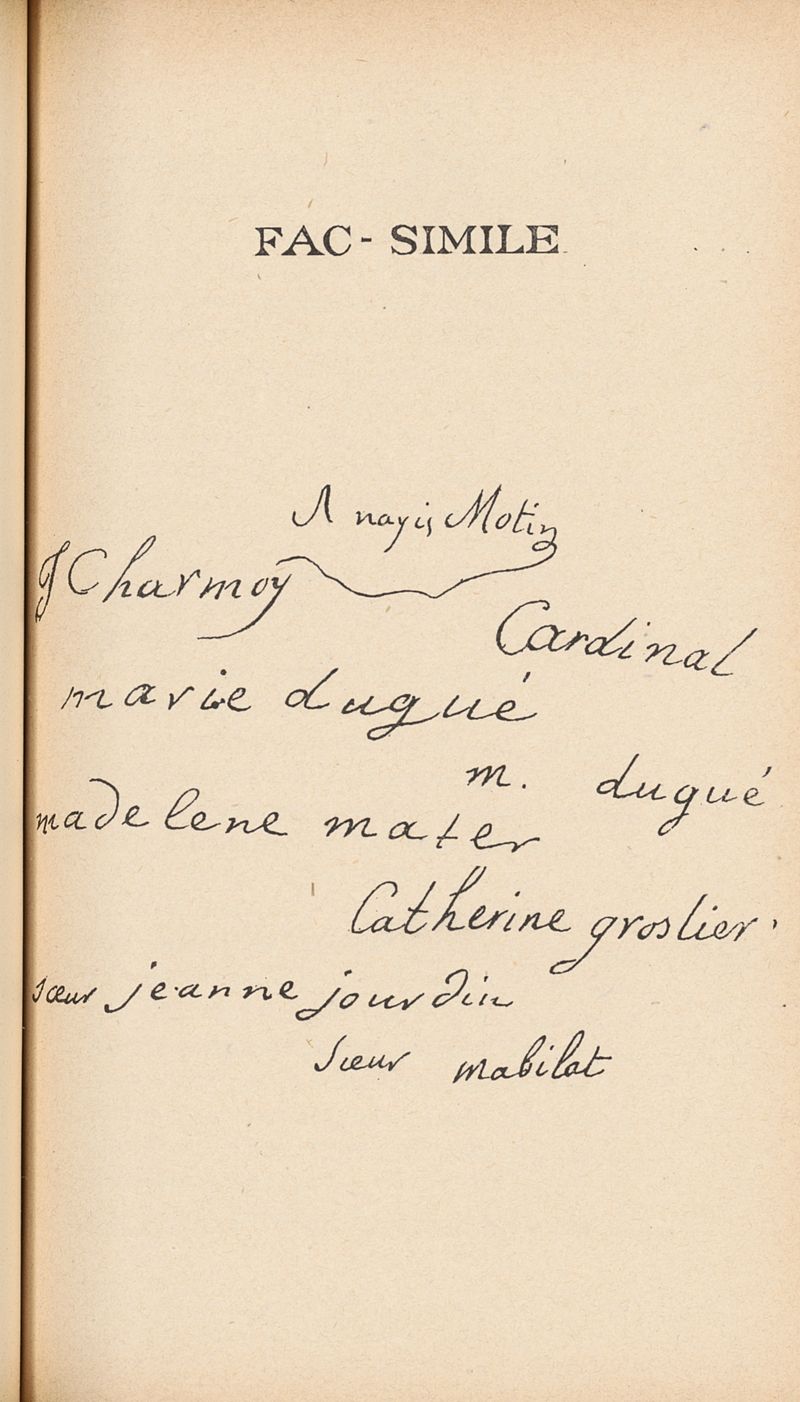 FAC-SIMILE
Anayis Motin
J Charmoy
Cardinal
marie dugué
m. dugué
madelene mater
Catherine groslier
sœur jeanne jourdin
sœur mabilat